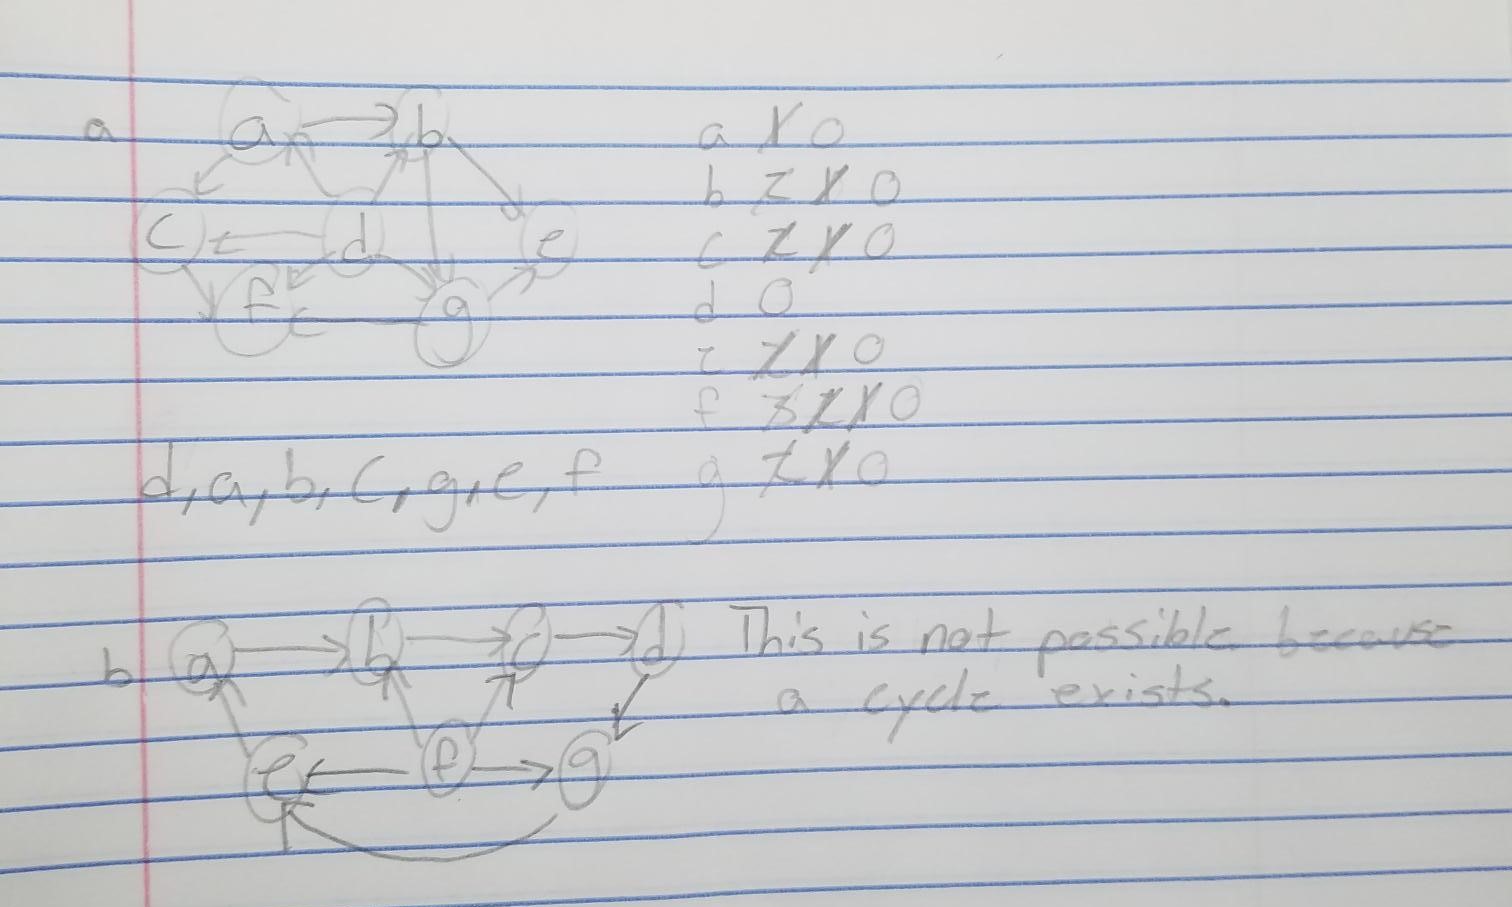 a
a b
c d e
f g
a 1 0
b 2 1 0
c 2 1 0
d 0
e 2 1 0
f 3 2 1 0
g 2 1 0
d, a, b, c, g, e, f
b a b c d This is not possible because
a cycle exists.
e f g